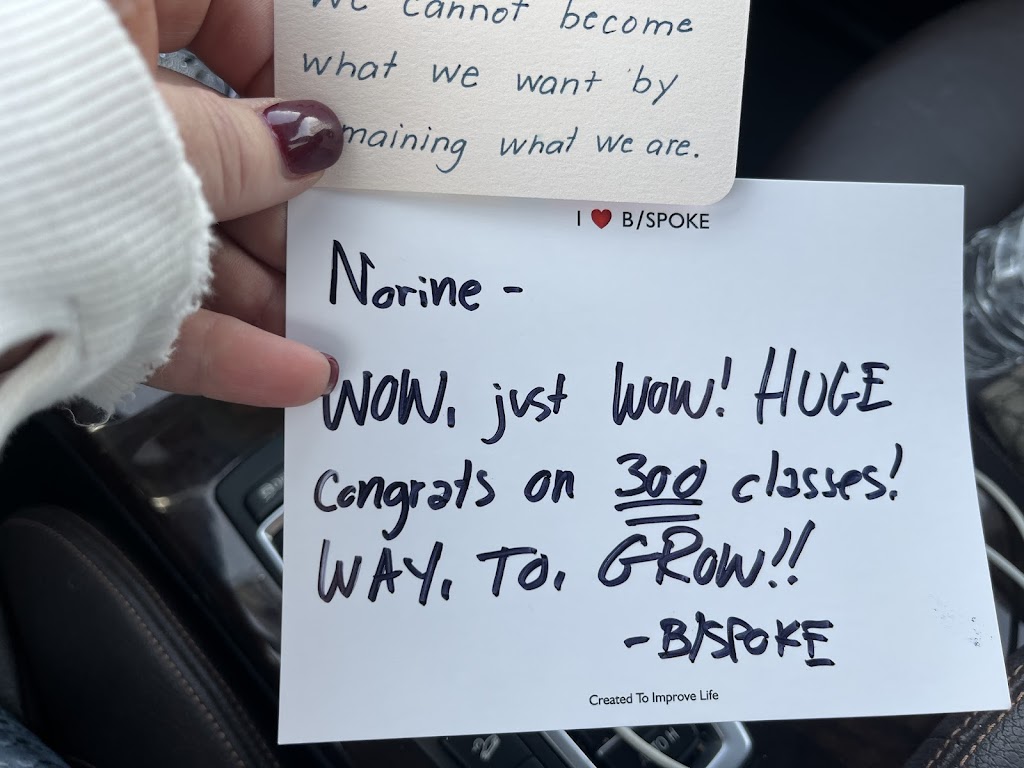 We cannot become
what we want by
maining what we are.
I ❤ B/SPOKE
Norine -
WOW, just WOW! HUGE
Congrats on 300 classes!
WAY. TO. GROW!!
- B/SPOKE
Created To Improve Life